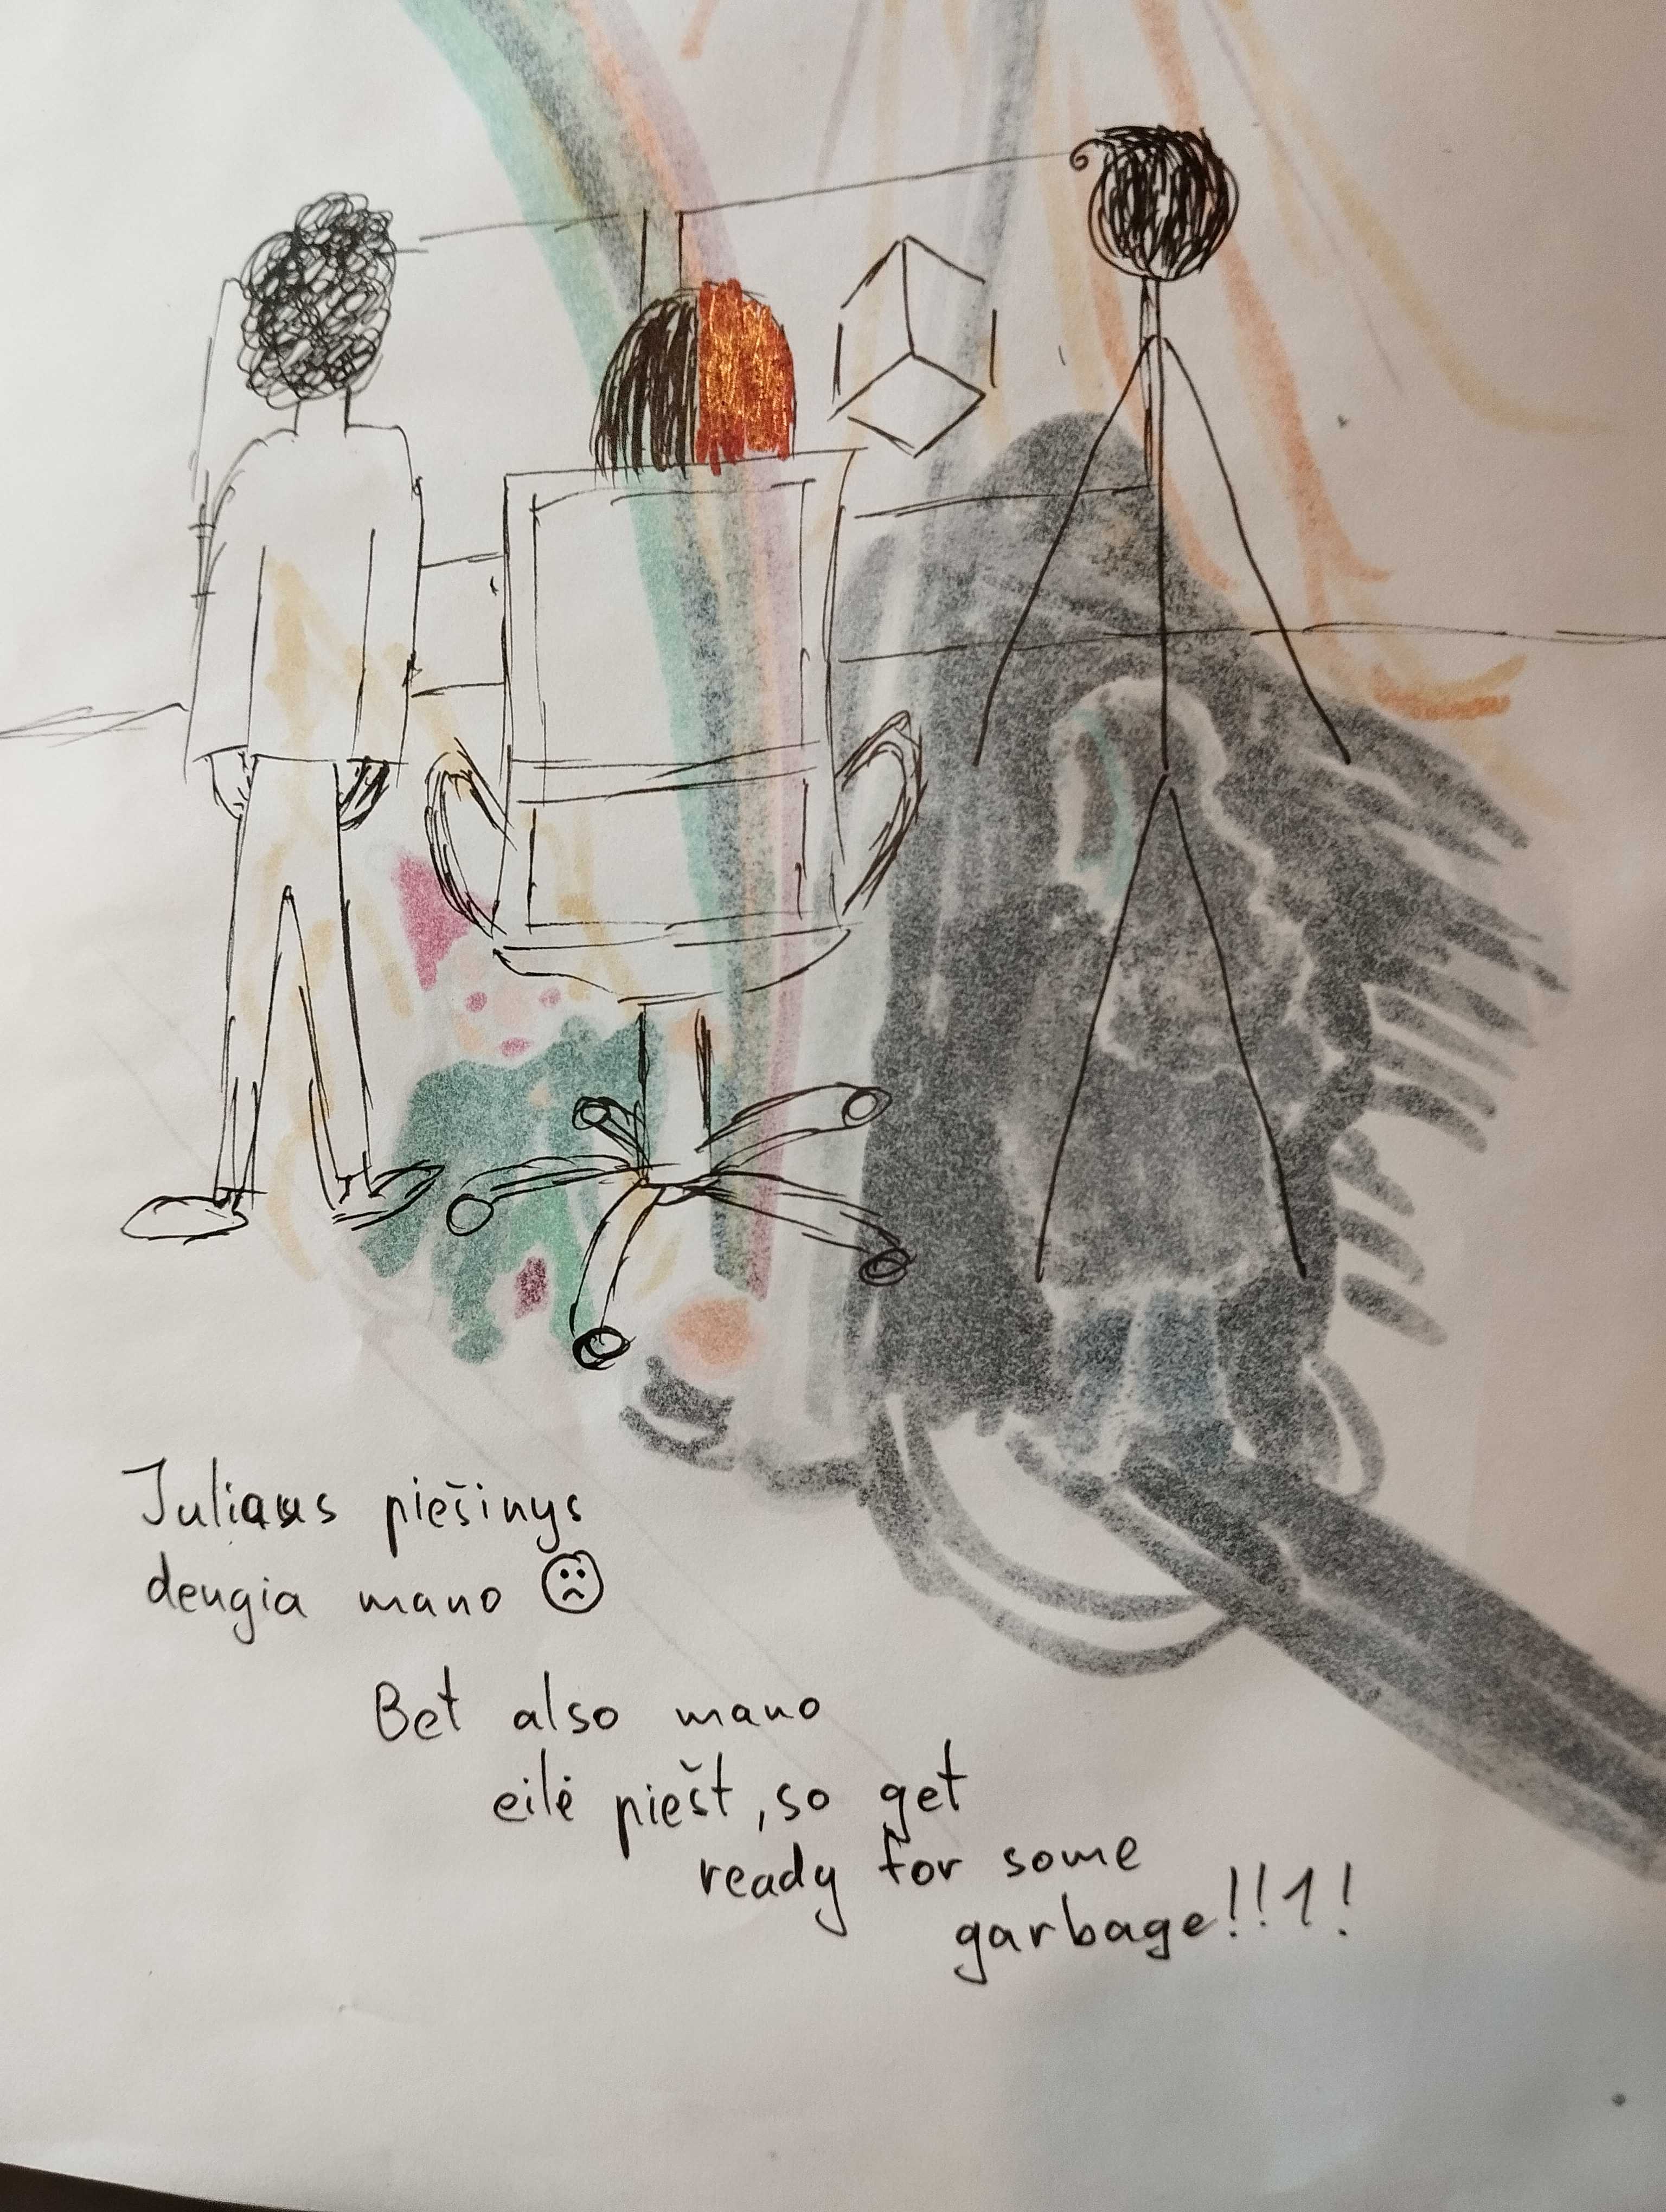 piešinys
dengia mano ☹
Bet also mano
eilė piešt, so get
ready for some
garbage!!1!